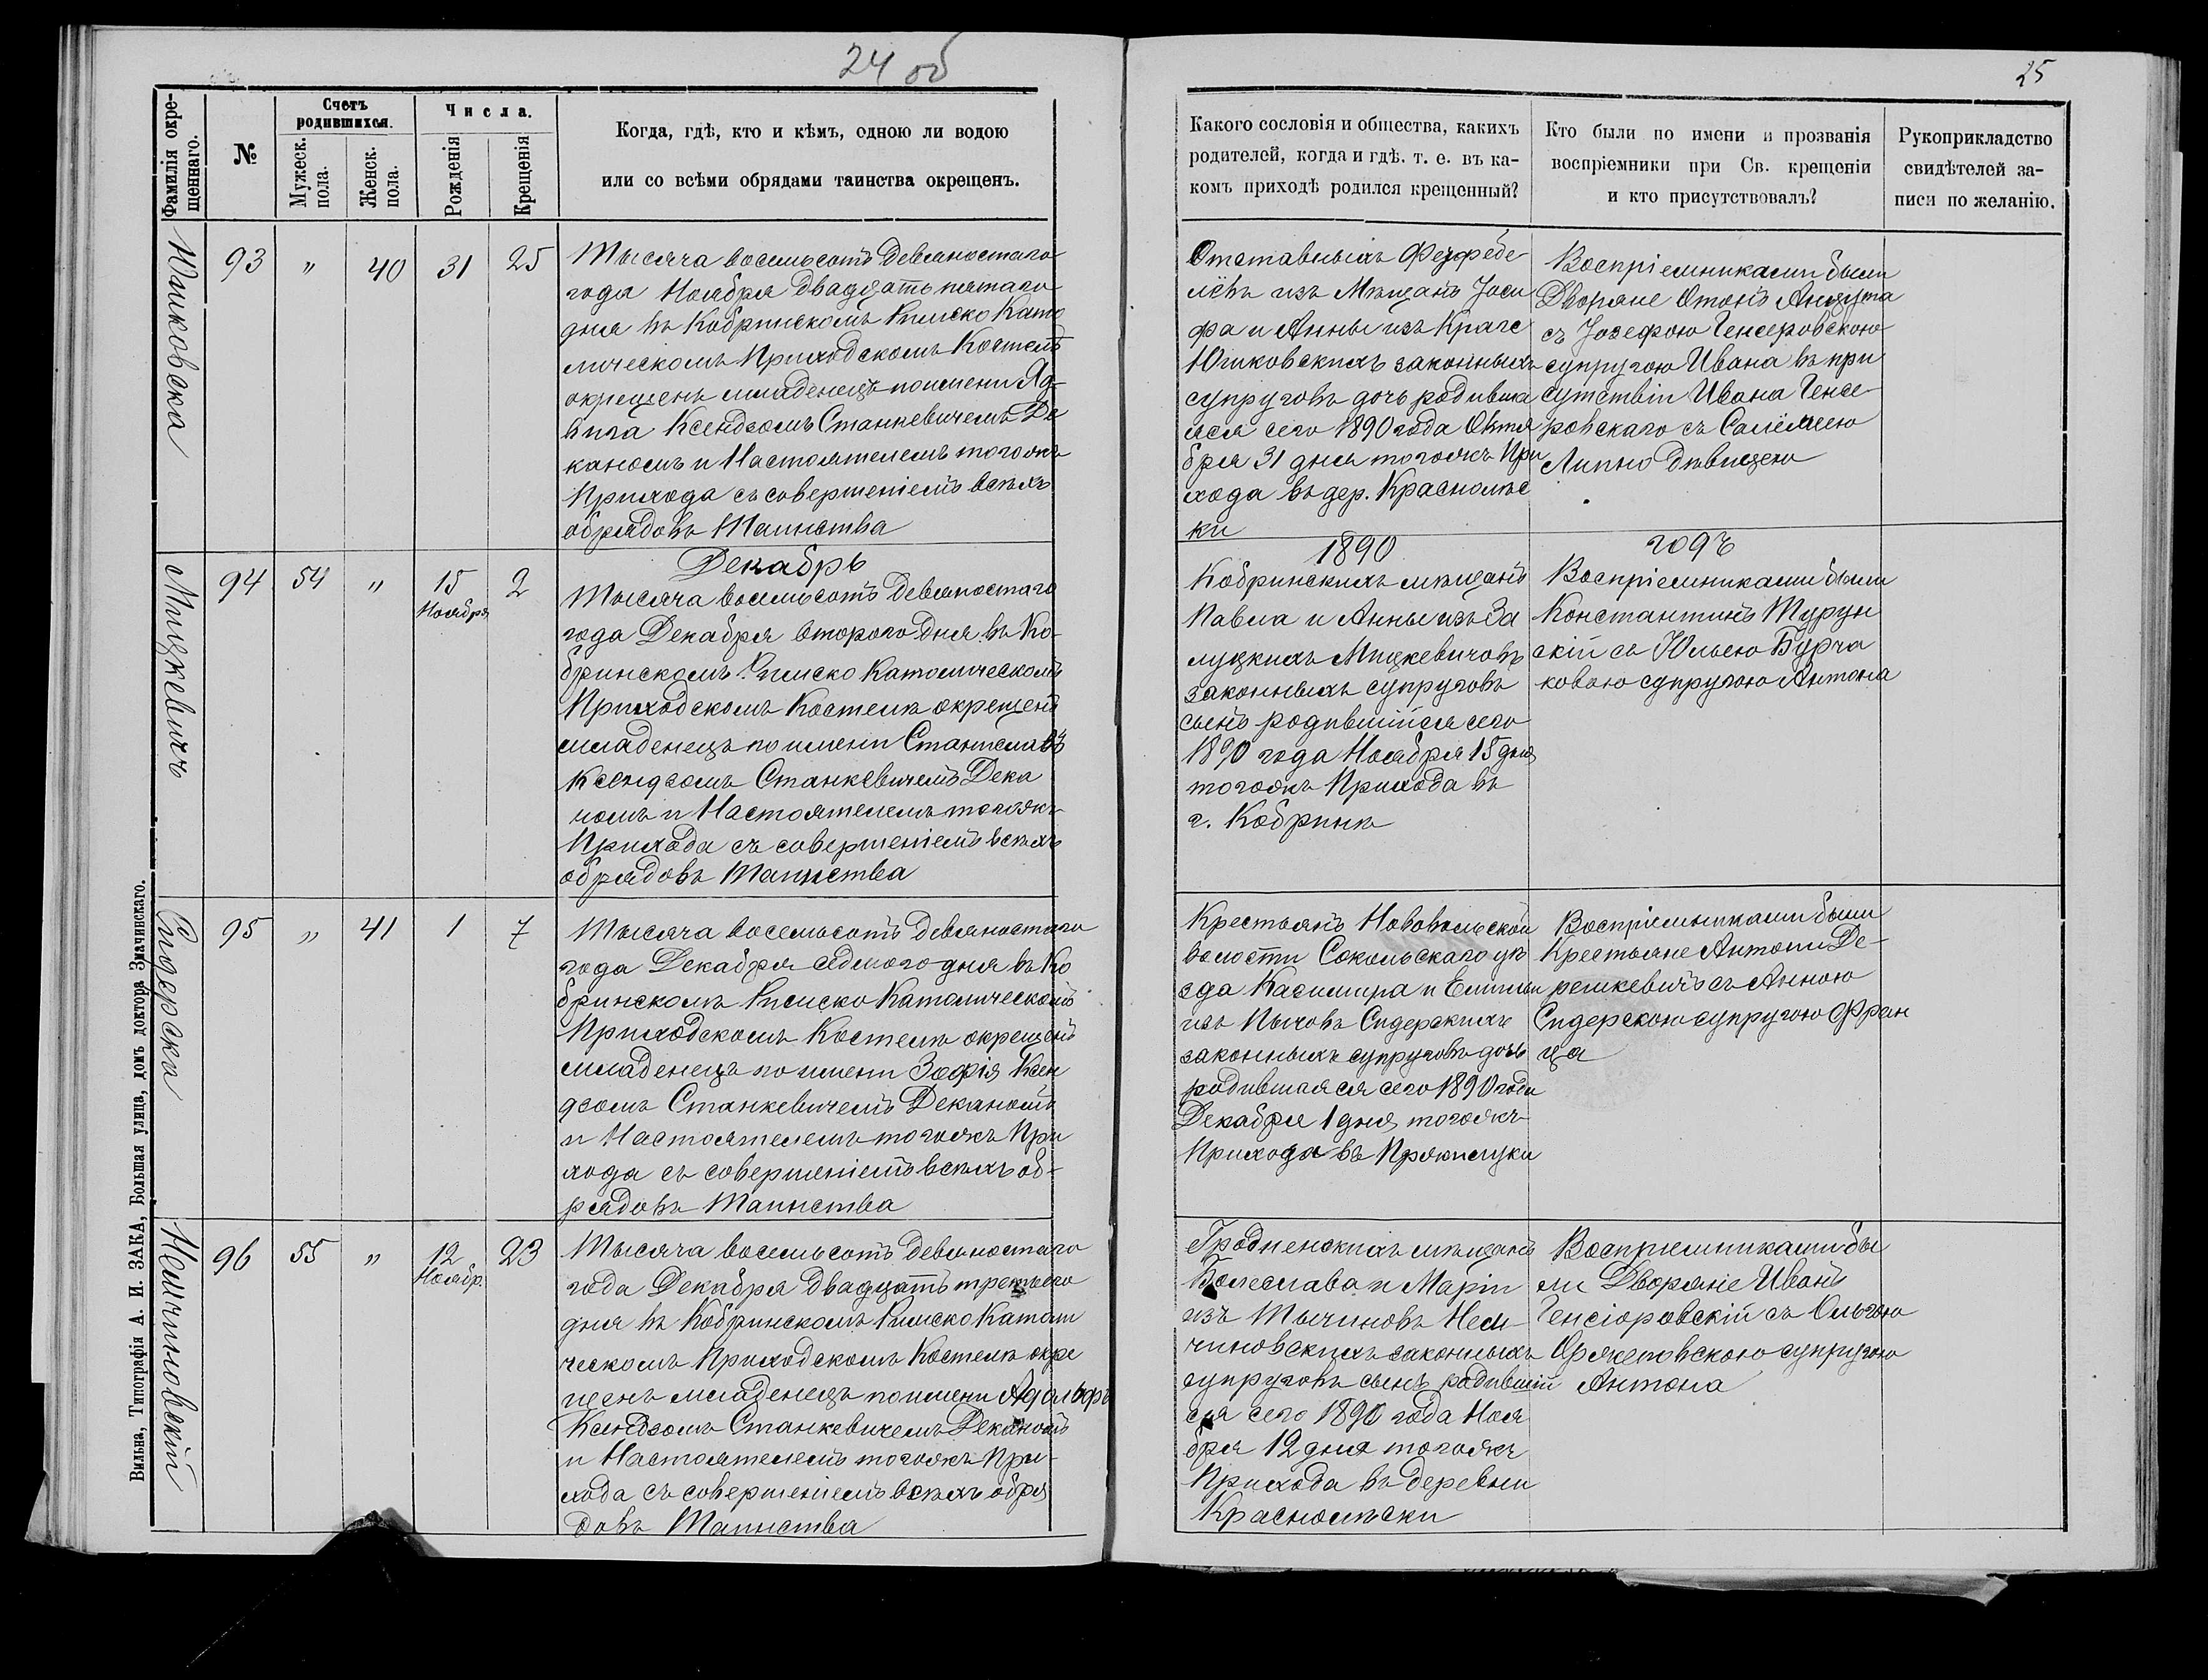 24 об
25
Фамилія окре-
щеннаго.
№
Счетъ
родившихся.
Мужеск.
пола.
Женск.
пола.
Числа.
Рожденія
Крещенія
Когда, гдѣ, кто и кѣмъ, одною ли водою
или со всѣми обрядами таинства окрещенъ.
Какого сословія и общества, какихъ
родителей, когда и гдѣ. т. е. въ ка-
комъ приходѣ родился крещенный?
Кто были по имени и прозванія
воспріемники при Св. крещеніи
и кто присутствовалъ?
Рукоприкладство
свидѣтелей за-
писи по желанію.
Юшковска
93 " 40 31 25
Тысяча восемьсотъ девяностаго
года Ноября двадцать пятаго
дня въ Кобринскомъ Римско Като
лическомъ Приходскомъ Костелѣ
окрещенъ младенецъ по имени Яд-
вига Ксендзомъ Станкевичемъ Де
каномъ и Настоятелемъ тогожъ
Прихода съ совершеніемъ всѣхъ
обрядовъ Таинства
Отставныхъ Фелфебе-
лёвъ изъ Мѣщанъ Іоси
фа и Анны изъ Краге
Юшковскихъ законныхъ
супруговъ дочь родивша
яся сего 1890 года Октя
бря 31 дня тогожъ При
хода въ дер. Краснолѣс
ки
Воспріемниками были
Дворяне Отонъ
съ Іозефою Генсеровскою
супругою Ивана въ при
сутствіи Ивана Генсе-
ровскаго съ Саломеею
Липко дѣвицею
Декабрь
1890
годъ
Мицкевичъ
94 54 " 15 2
Ноября
Тысяча восемьсотъ девяностаго
года Декабря второго дня въ Ко-
бринскомъ Римско Католическомъ
Приходскомъ Костелѣ окрещенъ
младенецъ по имени Станиславъ
Ксендзомъ Станкевичемъ Дека
номъ и Настоятелемъ тогожъ
Прихода съ совершеніемъ всѣхъ
обрядовъ Таинства
Кобринскихъ мѣщанъ
Павла и Анны изъ За
луцкихъ Мицкевичовъ
законныхъ супруговъ
сынъ родившійся сего
1890 года Ноября 15 дня
тогожъ Прихода въ
г. Кобринѣ
Воспріемниками были
Константинъ Турун
скій съ Юльею Бурча
ковою супругою Антона
Сидерска
95 " 41 1 7
Тысяча восемьсотъ девяностаго
года Декабря седмого дня въ Ко
бринскомъ Римско Католическомъ
Приходскомъ Костелѣ окрещенъ
младенецъ по имени Зофія Ксен
дзомъ Станкевичемъ Деканомъ
и Настоятелемъ тогожъ При
хода съ совершеніемъ всѣхъ об-
рядовъ Таинства
Крестьянъ Нововольской
волости Сокольскаго уѣ
зда Казимира и Емиліи
изъ Пычовъ Сидерскихъ
законныхъ супруговъ дочь
родившаяся сего 1890 года
Декабря 1 дня тогожъ
Прихода въ
Воспріемниками были
Крестьяне Антони Де-
решкевичъ съ Анною
Сидерскою супругою Фран
ца
Немчиновскій
96 55 " 12 23
Ноябр.
Тысяча восемьсотъ девяностаго
года Декабря двадцать третьего
дня въ Кобринскомъ Римско Католи
ческомъ Приходскомъ Костелѣ окре
щенъ младенецъ по имени Адольфъ
Ксендзомъ Станкевичемъ Деканомъ
и Настоятелемъ тогожъ При-
хода съ совершеніемъ всѣхъ обря
довъ Таинства
Гродненскихъ мѣщанъ
Болеслава и Маріи
изъ Тычиновъ Нем-
чиновскихъ законныхъ
супруговъ сынъ родившій
ся сего 1890 года Ноя
бря 12 дня тогожъ
Прихода въ деревни
Краснолѣски
Воспріемниками бы
ли Дворяніе Иванъ
Генсіоровскій съ Ольгою
Оржеповскою супругою
Антона
Вильна, Типографія А. И. ЗАКА, Большая улица, домъ доктора Змачинскаго.